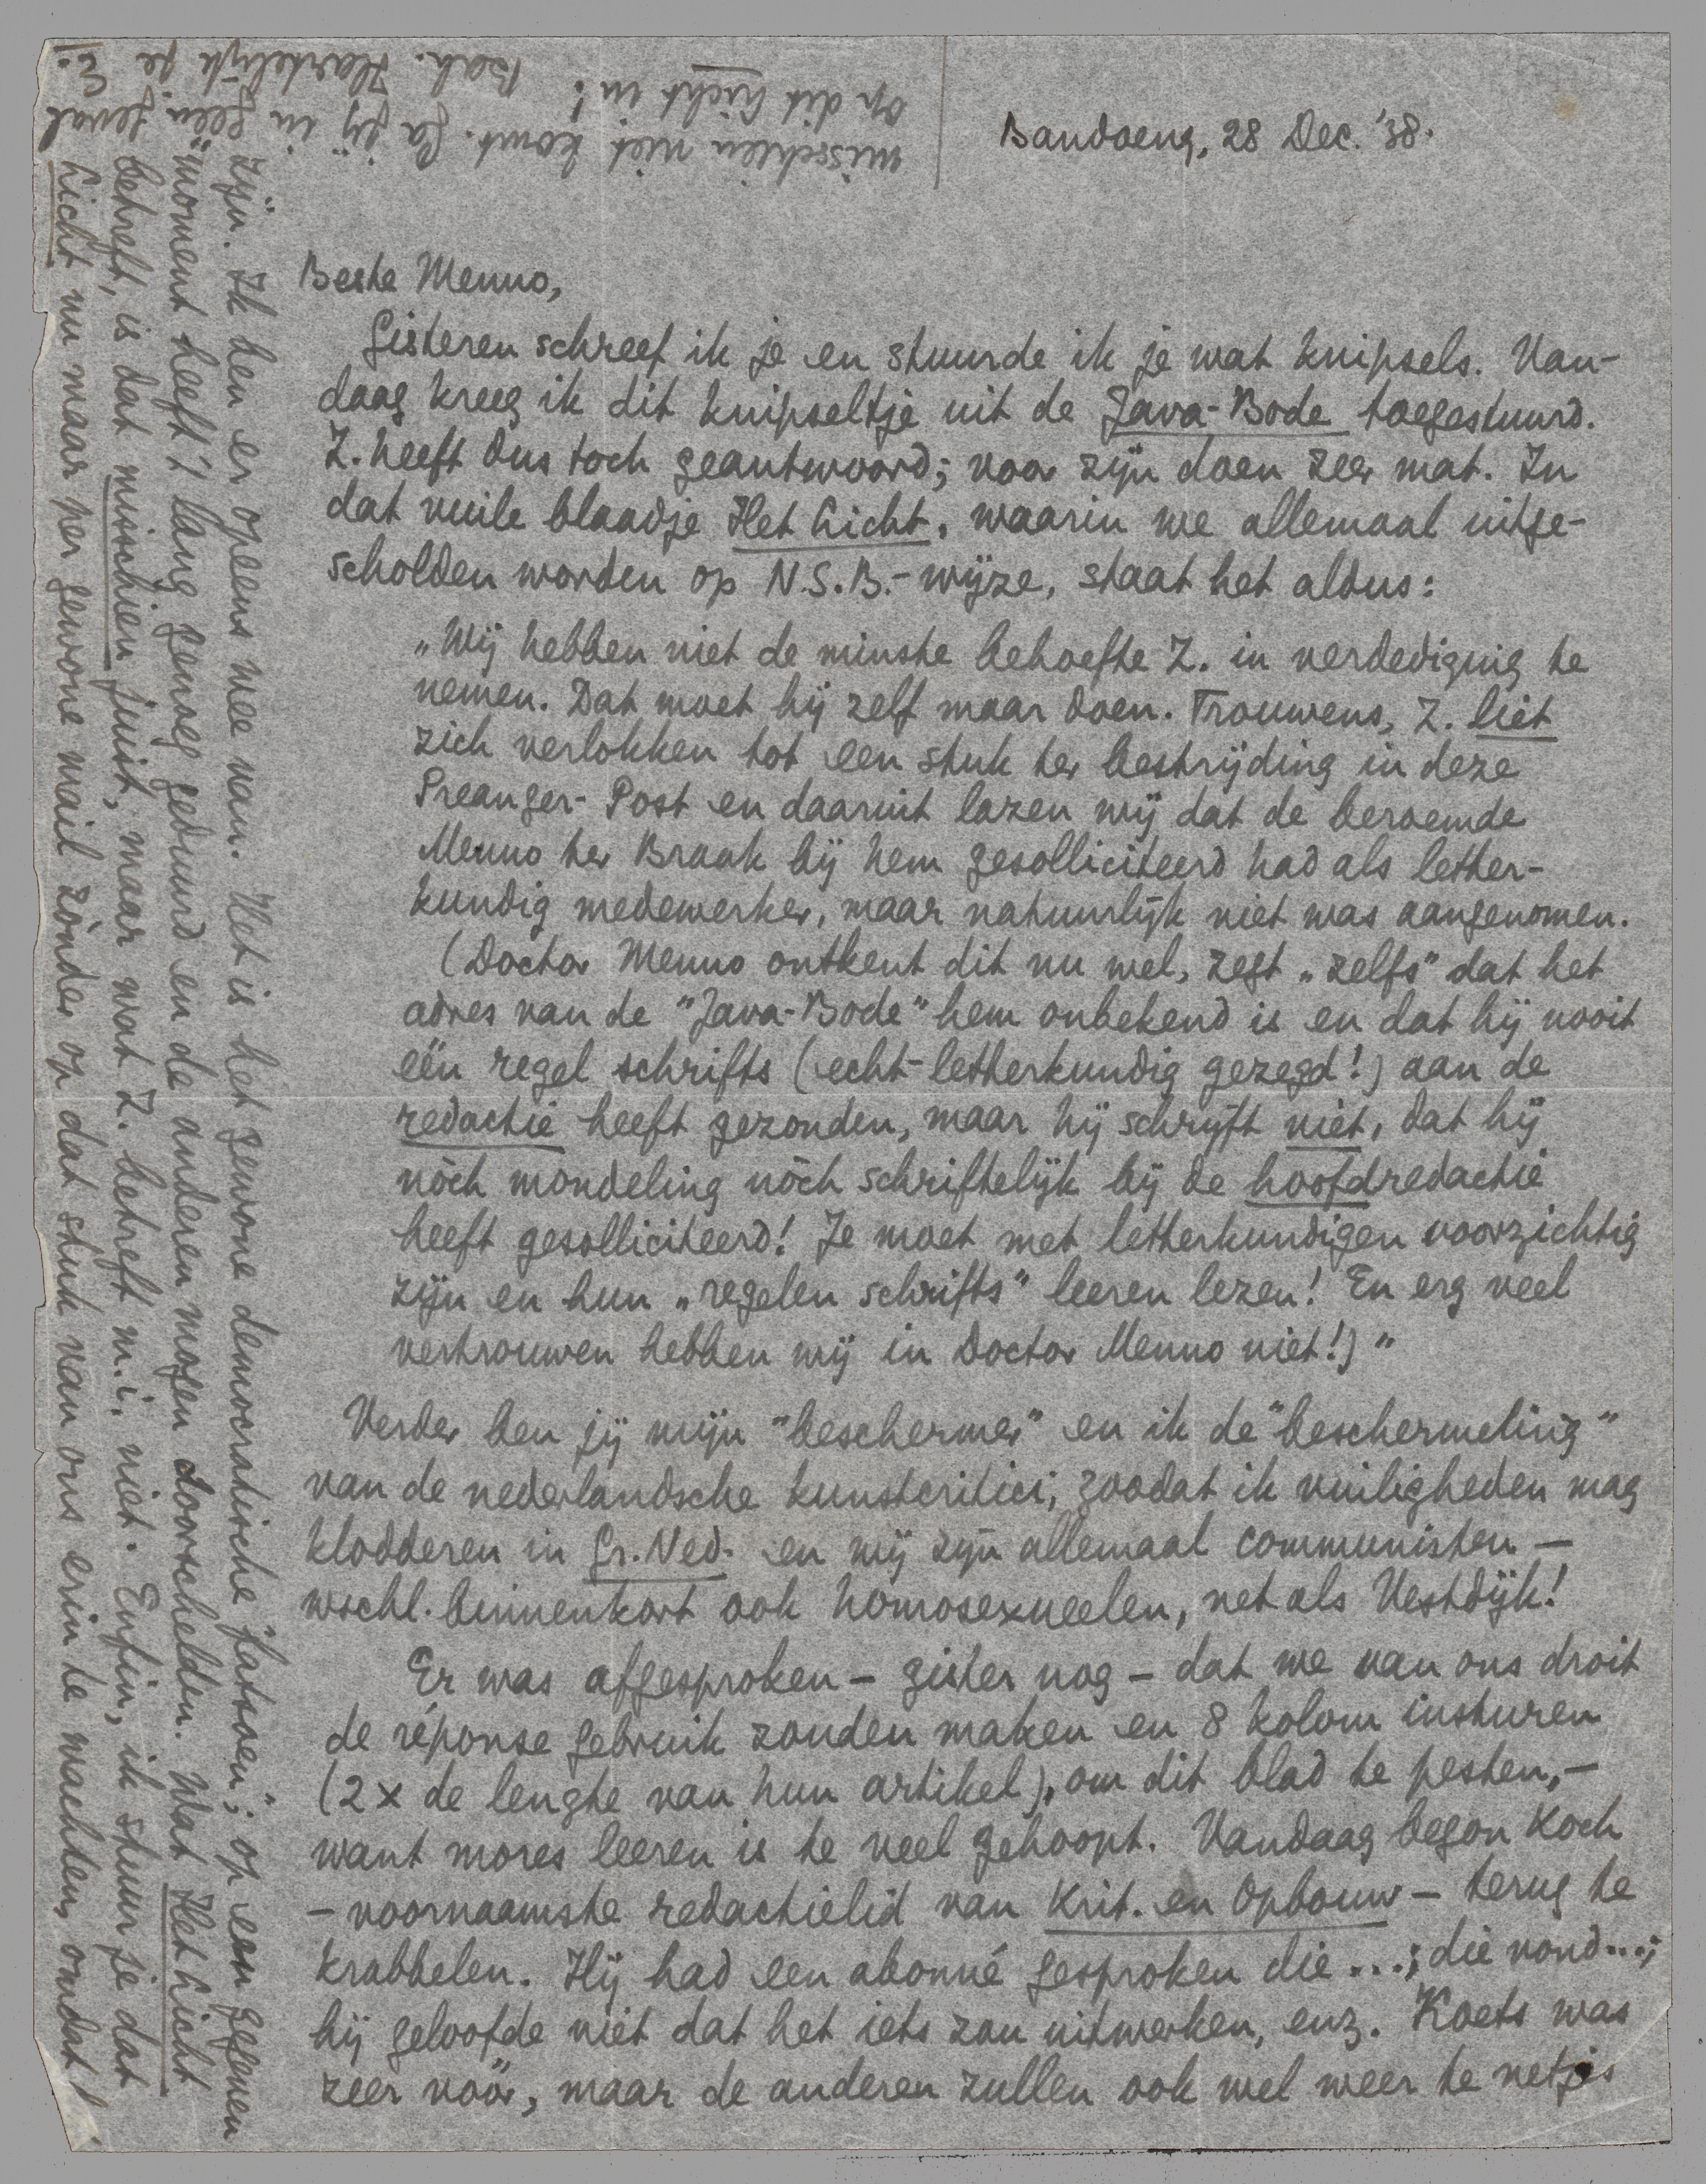 Bandoeng, 28 Dec. '38.
Beste Menno,
Gisteren schreef ik je en stuurde ik je wat knipsels. Van-
daag kreeg ik dit knipseltje uit de Java-Bode toegestuurd.
Z. heeft dus toch geantwoord; voor zijn doen zeer mat. In
dat vuile blaadje Het Licht, waarin we allemaal uitge-
scholden worden op N.S.B.-wijze, staat het aldus:
„Wij hebben niet de minste behoefte Z. in verdediging te
nemen. Dat moet hij zelf maar doen. Trouwens, Z. liet
zich verlokken tot een stuk ter bestrijding in deze
Preanger-Post en daaruit lazen wij dat de beroemde
Menno ter Braak bij hem gesolliciteerd had als letter-
kundig medewerker, maar natuurlijk niet was aangenomen.
(Doctor Menno ontkent dit nu wel, zegt „zelfs" dat het
adres van de "Java-Bode" hem onbekend is en dat hij nooit
één regel schrifts (echt-letterkundig gezegd!) aan de
redactie heeft gezonden, maar hij schrijft niet, dat hij
nòch mondeling nòch schriftelijk bij de hoofdredactie
heeft gesolliciteerd! Je moet met letterkundigen voorzichtig
zijn en hun „regelen schrifts" leeren lezen! En erg veel
vertrouwen hebben wij in Doctor Menno niet!)"
Verder ben jij mijn "beschermer" en ik de "beschermeling"
van de nederlandsche kunstcritici, zoodat ik vuiligheden mag
klodderen in Gr. Ned. en wij zijn allemaal communisten —
wschl. binnenkort ook homosexueelen, net als Vestdijk!
Er was afgesproken – gister nog – dat we van ons droit
de réponse gebruik zouden maken en 8 kolom insturen
(2 x de lengte van hun artikel), om dit blad te pesten, –
want mores leeren is te veel gehoopt. Vandaag begon Koch
– voornaamste redactielid van Krit. en Opbouw – terug te
krabbelen. Hij had een abonné gesproken die...; die vond...;
hij geloofde niet dat het iets zou uitwerken, enz. Koets was
zeer vóór, maar de anderen zullen ook wel weer te netjes
zijn. Ik ben er opeens wee van. Het is het gewone democratische "fatsoen"; op een gegeven
"moment heeft 't lang genoeg geduurd en de anderen mogen doorschelden. Wat Het Licht
betreft, is dat misschien juist, maar wat Z. betreft m.i. niet. Enfin, ik stuur je dat
Licht nu maar per gewone mail zònder op dat stuk van ons erin te wachten, omdat 't
misschien niet komt. Ga jij in geen geval
op dit Licht in! Bah. Hartelijk je
E.